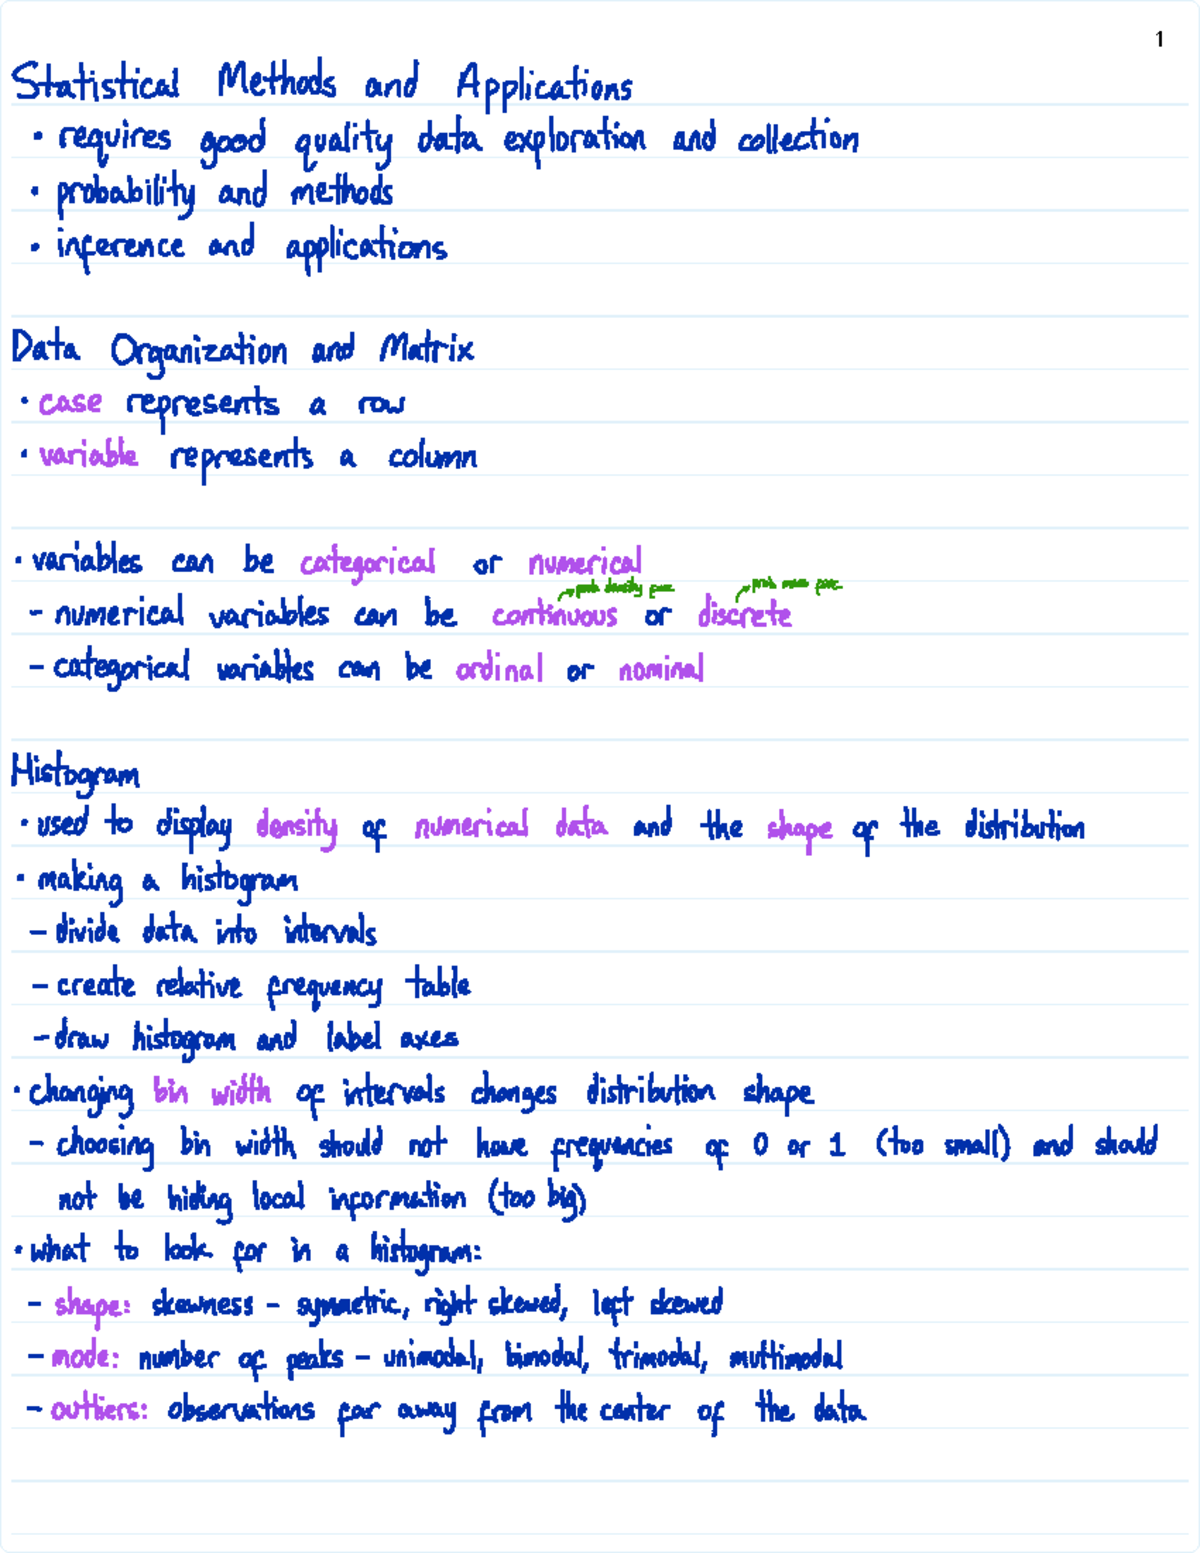 1
Statistical Methods and Applications
• requires good quality data exploration and collection
• probability and methods
• inference and applications
Data Organization and Matrix
• case represents a row
• variable represents a column
• variables can be categorical or numerical
prob density func prob mass func
- numerical variables can be continuous or discrete
- categorical variables can be ordinal or nominal
Histogram
• used to display density of numerical data and the shape of the distribution
• making a histogram
- divide data into intervals
- create relative frequency table
- draw histogram and label axes
• changing bin width of intervals changes distribution shape
- choosing bin width should not have frequencies of 0 or 1 (too small) and should
not be hiding local information (too big)
• what to look for in a histogram:
- shape: skewness - symmetric, right skewed, left skewed
- mode: number of peaks - unimodal, bimodal, trimodal, multimodal
- outliers: observations far away from the center of the data